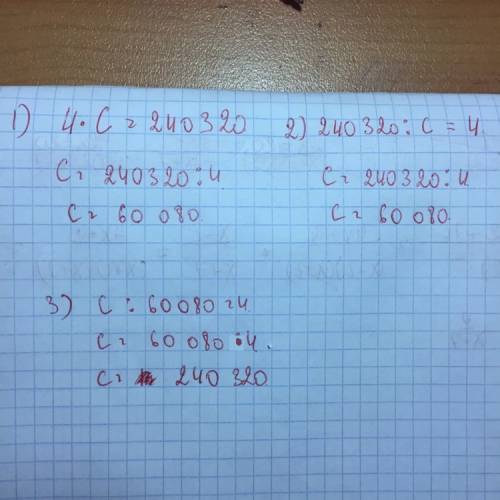 1) 4·C = 240320
C = 240320:4
C = 60 080
2) 240320:C = 4.
C = 240320:4
C = 60 080.
3) C : 60080 = 4
C = 60 080 · 4.
C = 240 320